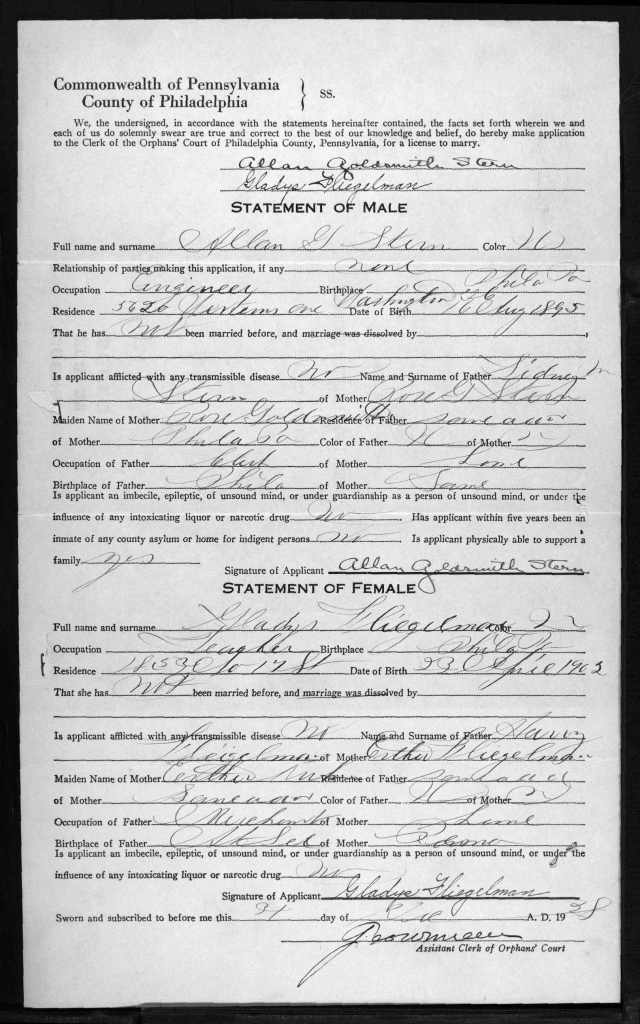 Commonwealth of Pennsylvania
County of Philadelphia } ss.
We, the undersigned, in accordance with the statements hereinafter contained, the facts set forth wherein we and
each of us do solemnly swear are true and correct to the best of our knowledge and belief, do hereby make application
to the Clerk of the Orphans' Court of Philadelphia County, Pennsylvania, for a license to marry.
Allan Goldsmith Stern
Gladys Fliegelman
STATEMENT OF MALE
Full name and surname Allan G Stern Color W
Relationship of parties making this application, if any none
Occupation Engineer Birthplace Phila Pa
Residence 5620 ave Washington Date of Birth 16 Aug 1895
That he has not been married before, and marriage was dissolved by
Is applicant afflicted with any transmissible disease No Name and Surname of Father Sidney M
Stern of Mother Rose G Stern
Maiden Name of Mother Rose Goldsmith Residence of Father same aar
of Mother Phila Pa Color of Father W of Mother W
Occupation of Father Clerk of Mother
Birthplace of Father Phila of Mother Same
Is applicant an imbecile, epileptic, of unsound mind, or under guardianship as a person of unsound mind, or under the
influence of any intoxicating liquor or narcotic drug No. Has applicant within five years been an
inmate of any county asylum or home for indigent persons No. Is applicant physically able to support a
family yes
Signature of Applicant Allan Goldsmith Stern
STATEMENT OF FEMALE
Full name and surname Gladys Fliegelman Color W
Occupation Teacher Birthplace Phila Pa
Residence So 17 St Date of Birth 23 April 1902
That she has not been married before, and marriage was dissolved by
Is applicant afflicted with any transmissible disease No Name and Surname of Father Harry
Fleigelman of Mother Esther Fliegelman
Maiden Name of Mother Esther Residence of Father same aar
of Mother Same aar Color of Father W of Mother W
Occupation of Father Merchant of Mother
Birthplace of Father of Mother
Is applicant an imbecile, epileptic, of unsound mind, or under guardianship as a person of unsound mind, or under the
influence of any intoxicating liquor or narcotic drug No
Signature of Applicant Gladys Fliegelman
Sworn and subscribed to before me this day of A. D. 1928
Assistant Clerk of Orphans' Court